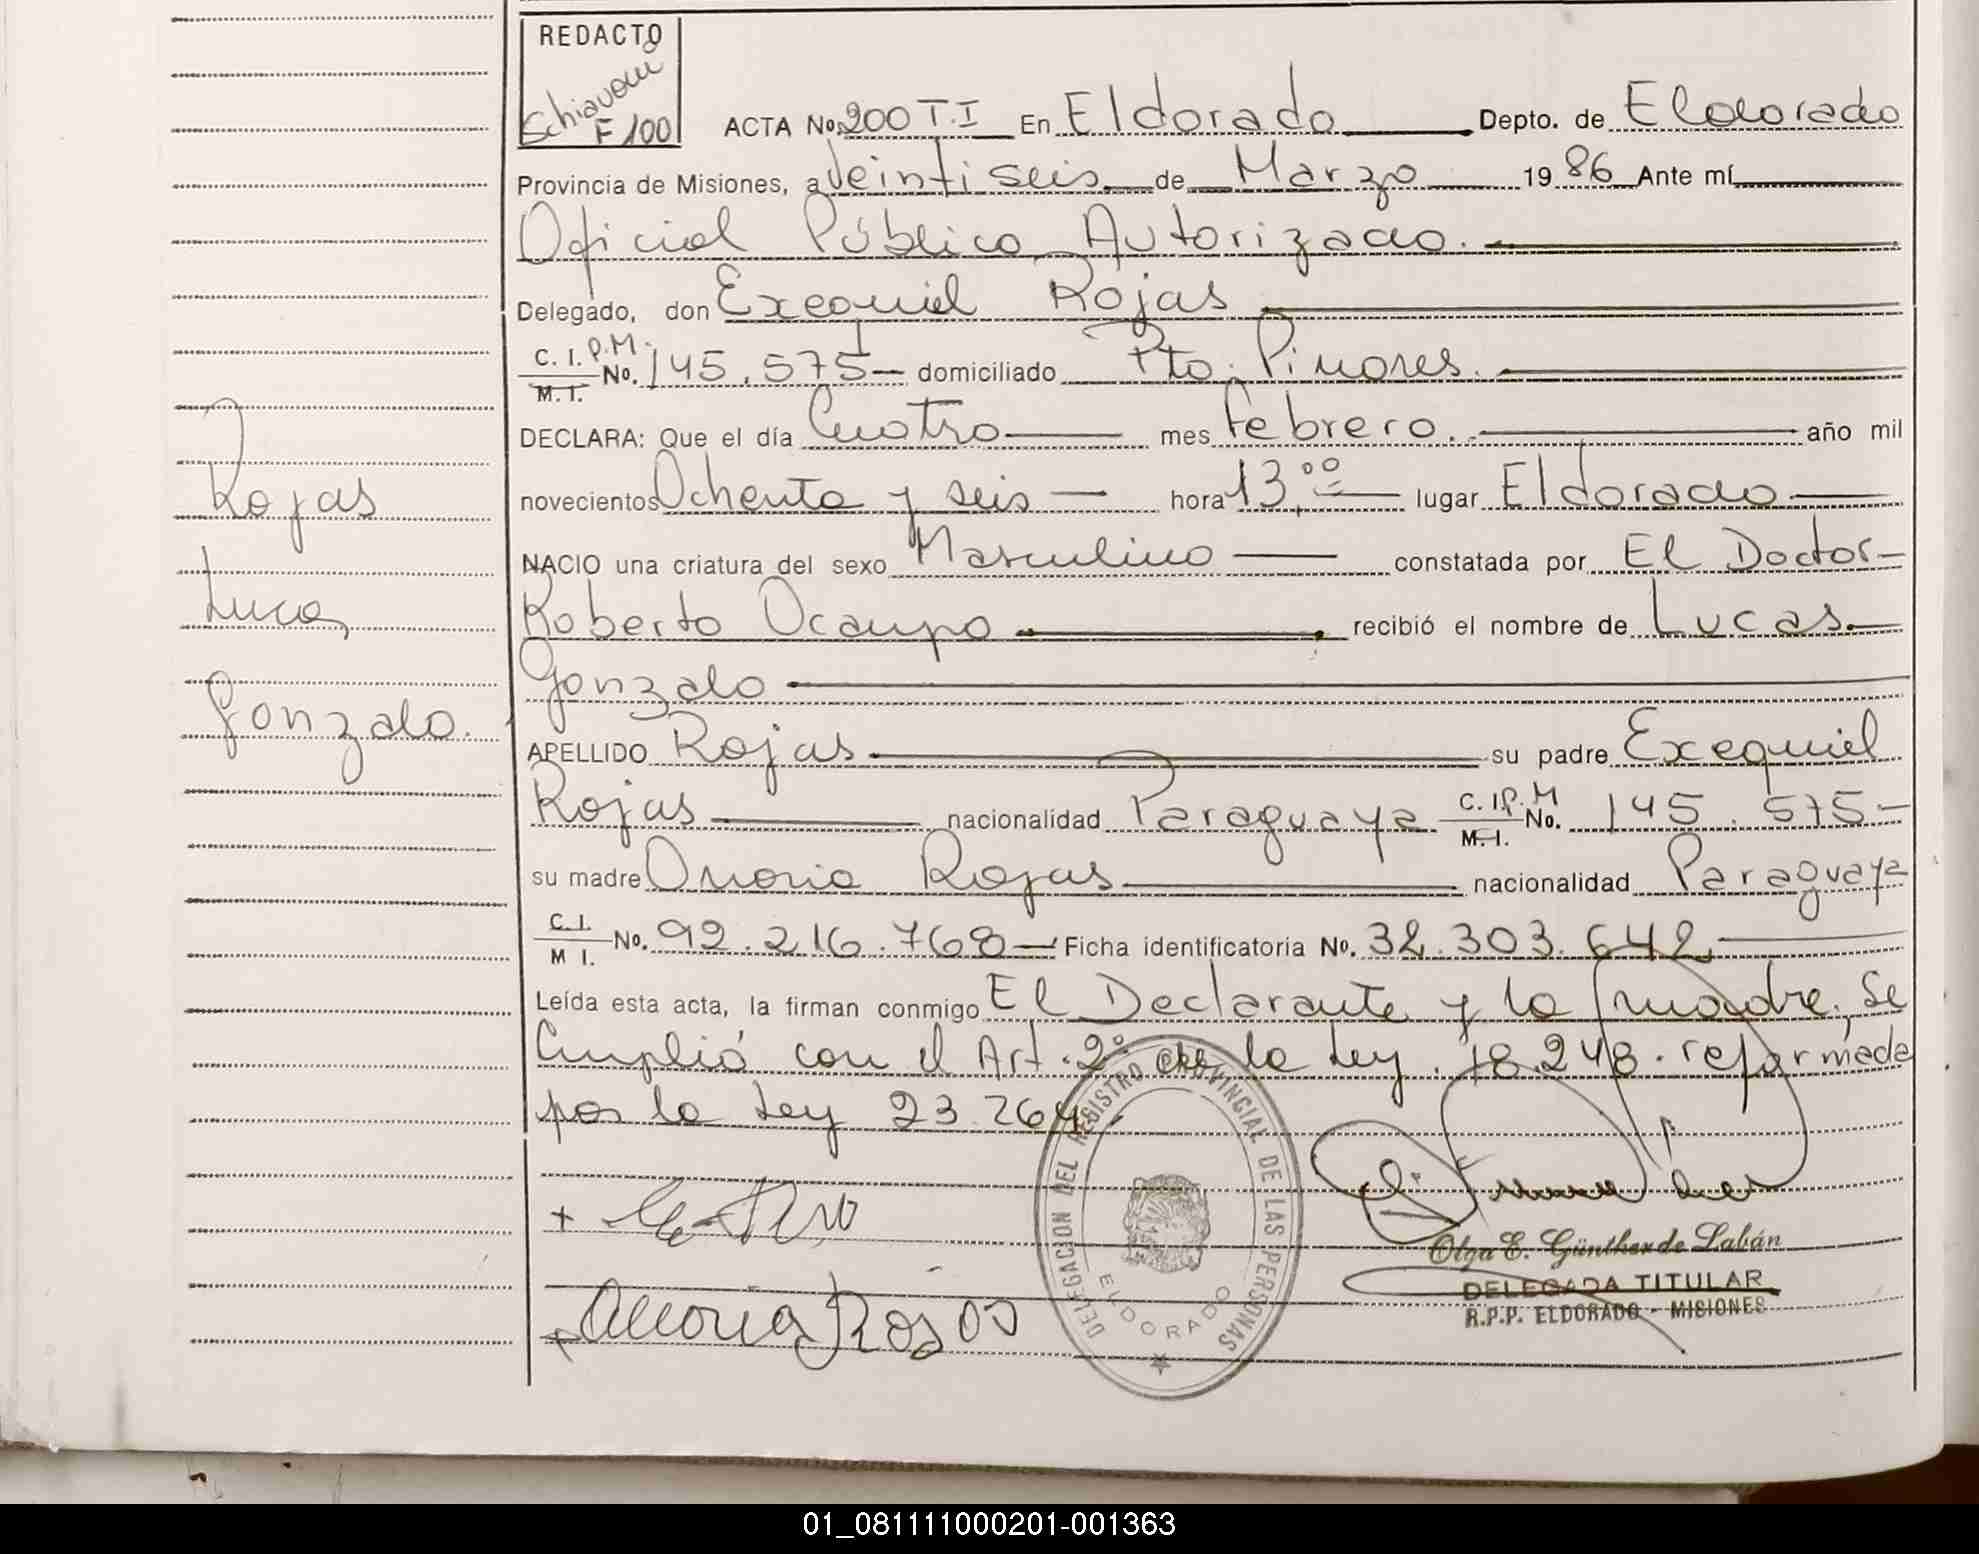 REDACTO
Schiavoni
F 100
ACTA No. 200 T.I En Eldorado Depto. de Eldorado
Provincia de Misiones, a Veintiseis de Marzo 1986 Ante mí
Oficial Público Autorizado.
Delegado, don Exequiel Rojas
C. I. P.M. M. I. No. 145.575 domiciliado Pto. Pinares.
DECLARA: Que el día Cuatro mes Febrero. año mil
novecientos Ochenta y seis hora 13,00 lugar Eldorado
NACIO una criatura del sexo Masculino constatada por El Doctor
Roberto Ocampo recibió el nombre de Lucas
Gonzalo
APELLIDO Rojas su padre Exequiel
Rojas nacionalidad Paraguaya C. I. P. M M. I. No. 145.575
su madre Onoria Rojas nacionalidad Paraguaya
C. I. M I. No. 92.216.768 Ficha identificatoria No. 32.303.642
Leída esta acta, la firman conmigo El Declarante y la madre. Se
Cumplió con el Art. 2° de la Ley. 18.248. reformada
por la Ley 23.264.
Rojas
Lucas
Gonzalo.
DELEGACION DEL REGISTRO PROVINCIAL DE LAS PERSONAS
ELDORADO
Olga E. Günther de Labán
DELEGADA TITULAR
R.P.P. ELDORADO - MISIONES
Onoria Rojas
01_081111000201-001363